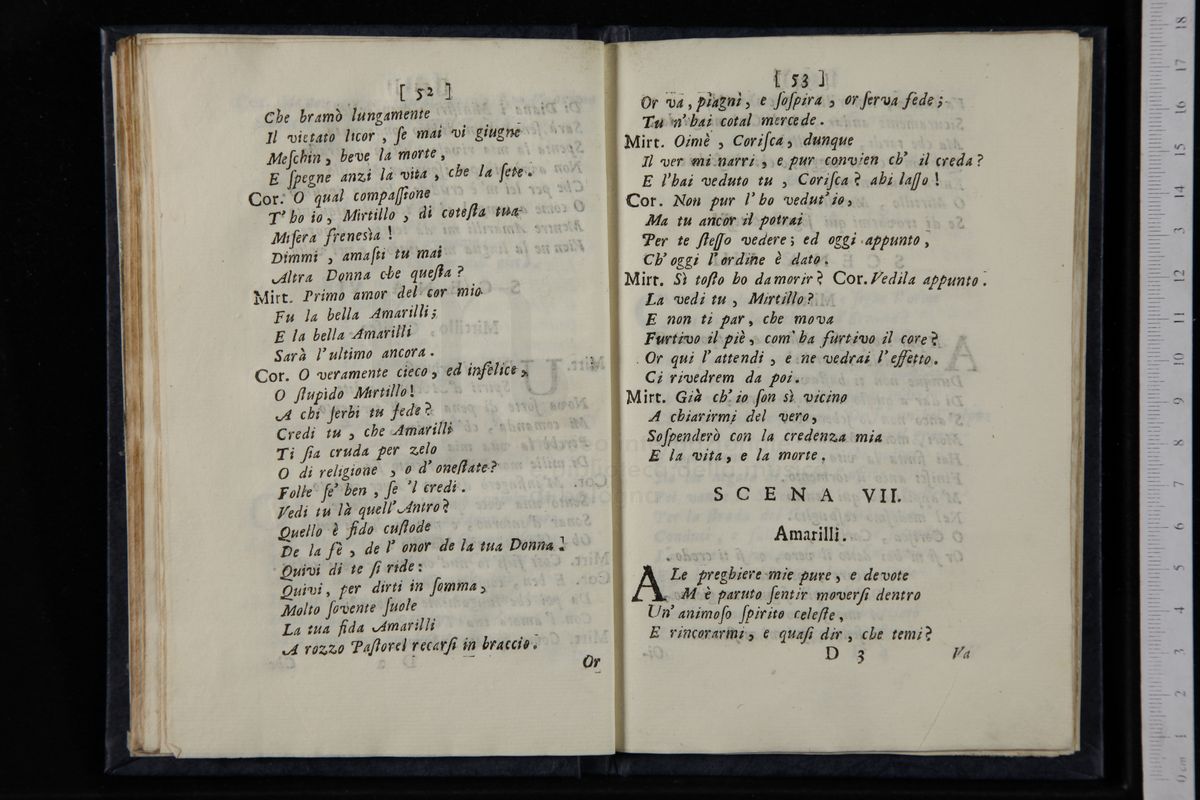 [ 52 ]
Che bramò lungamente
Il vietato licor , ſe mai vi giugne
Meſchin , beve la morte ,
E ſpegne anzi la vita , che la ſete .
Cor. O qual compaſſione
T' ho io , Mirtillo , di coteſta tua
Miſera freneſia !
Dimmi , amaſti tu mai
Altra Donna che queſta ?
Mirt. Primo amor del cor mio
Fu la bella Amarilli ;
E la bella Amarilli
Sarà l' ultimo ancora .
Cor. O veramente cieco , ed infelice ,
O ſtupido Mirtillo !
A chi ſerbi tu fede ?
Credi tu , che Amarilli
Ti ſia cruda per zelo
O di religione , o d' oneſtate ?
Folle ſe' ben , ſe 'l credi .
Vedi tu là quell' Antro ?
Quello è fido cuſtode
De la fè , de l' onor de la tua Donna .
Quivi di te ſi ride :
Quivi , per dirti in ſomma ,
Molto ſovente ſuole
La tua fida Amarilli
A rozzo Paſtorel recarſi in braccio .
Or
[ 53 ]
Or va , piagni , e ſoſpira , or ſerva fede ;
Tu n' hai cotal mercede .
Mirt. Oimè , Coriſca , dunque
Il ver mi narri , e pur convien ch' il creda ?
E l' hai veduto tu , Coriſca ? ahi laſſo !
Cor. Non pur l' ho vedut' io ,
Ma tu ancor il potrai
Per te ſteſſo vedere ; ed oggi appunto ,
Ch' oggi l' ordine è dato .
Mirt. Sì toſto ho da morir ? Cor. Vedila appunto .
La vedi tu , Mirtillo ?
E non ti par , che mova
Furtivo il piè , com' ha furtivo il core ?
Or qui l' attendi , e ne vedrai l' effetto .
Ci rivedrem da poi .
Mirt. Già ch' io ſon sì vicino
A chiarirmi del vero ,
Soſpenderò con la credenza mia
E la vita , e la morte .
SCENA VII.
Amarilli .
ALe preghiere mie pure , e devote
M è paruto ſentir moverſi dentro
Un' animoſo ſpirito celeſte ,
E rincorarmi , e quaſi dir , che temi ?
D 3
Va